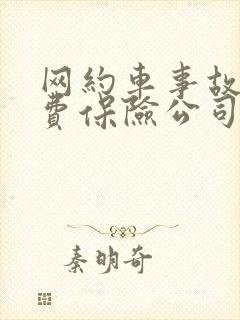 网约车事故
费保险公司
秦明奇